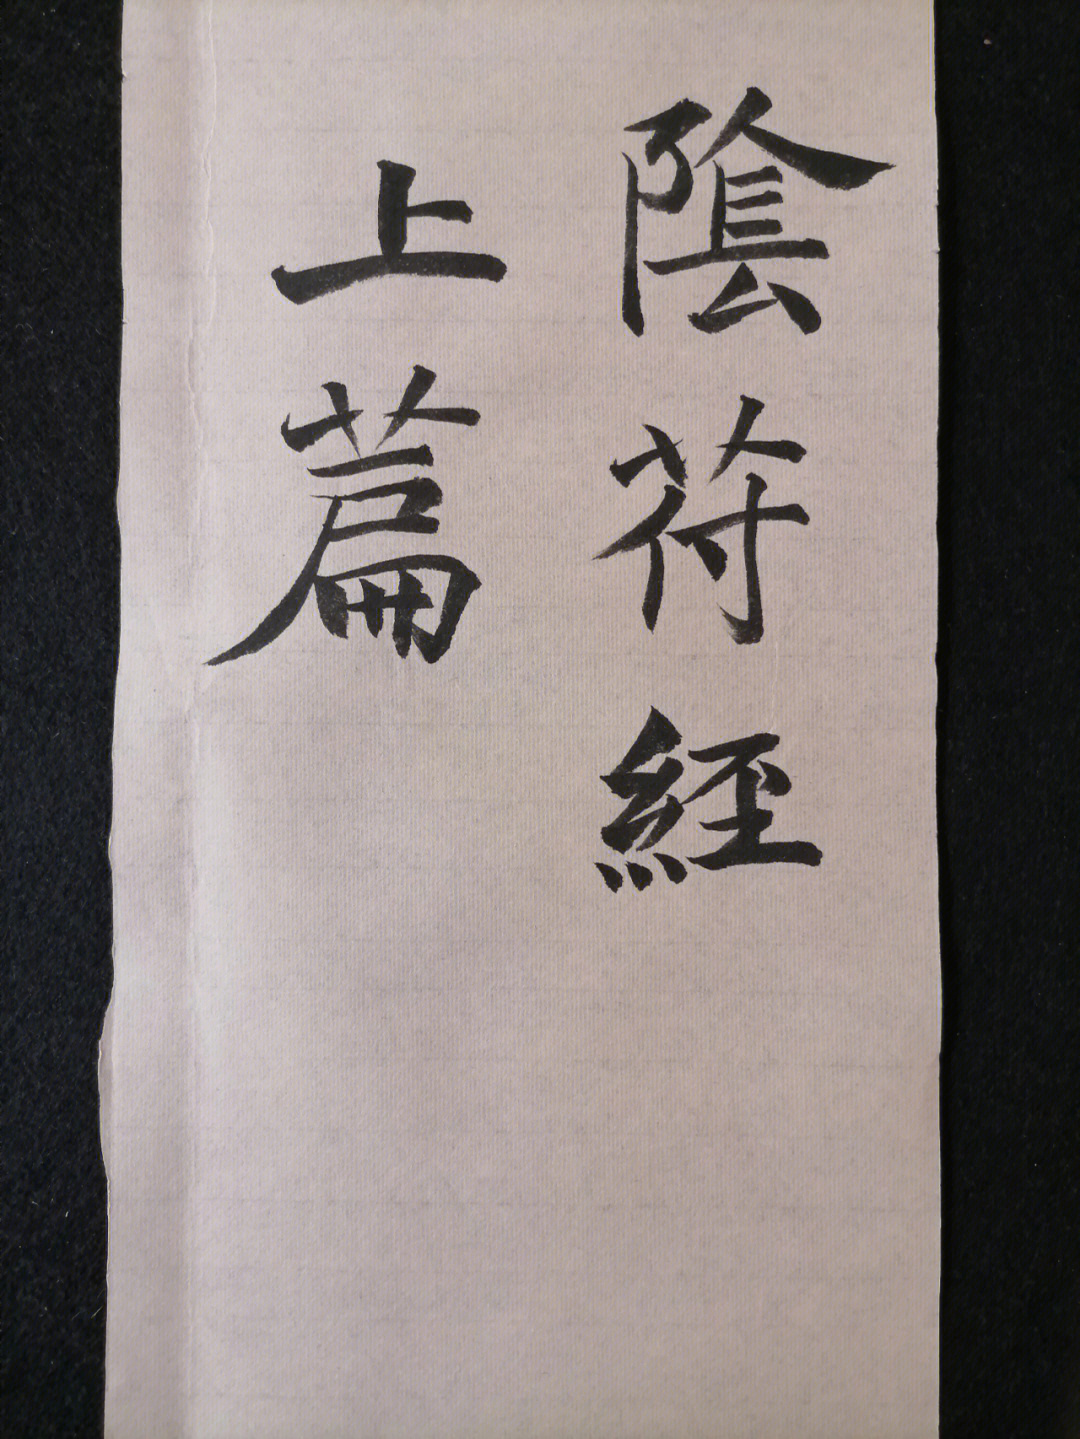 陰符經
上篇